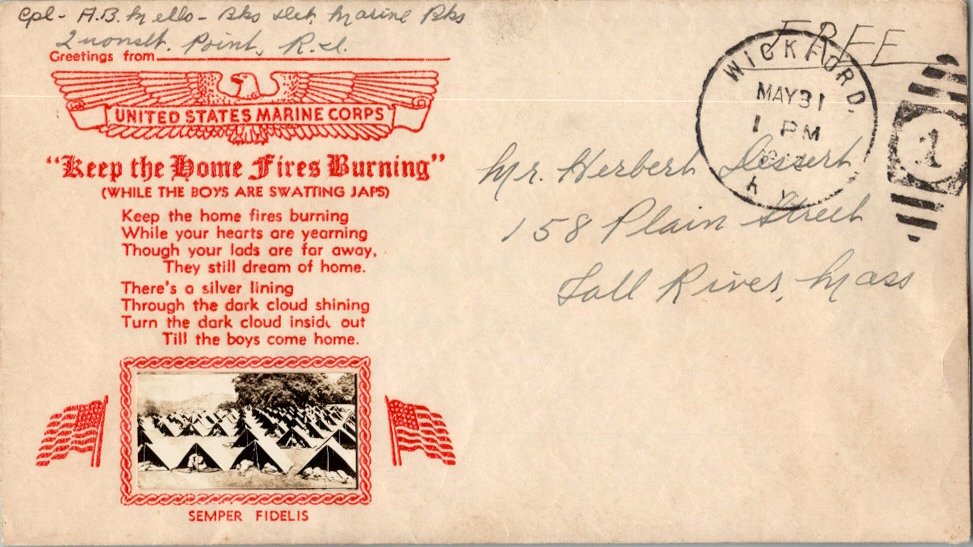 Cpl- A.B. Mello- Bks Det, Marine Bks
Quonset. Point, R.I.
Greetings from
UNITED STATES MARINE CORPS
"Keep the Home Fires Burning"
(WHILE THE BOYS ARE SWATTING JAPS)
Keep the home fires burning
While your hearts are yearning
Though your lads are far away,
They still dream of home.
There's a silver lining
Through the dark cloud shining
Turn the dark cloud inside out
Till the boys come home.
SEMPER FIDELIS
FREE
WICKFORD,
MAY 31
1 PM
1
Mr. Herbert
158 Plain Street
Fall River, Mass